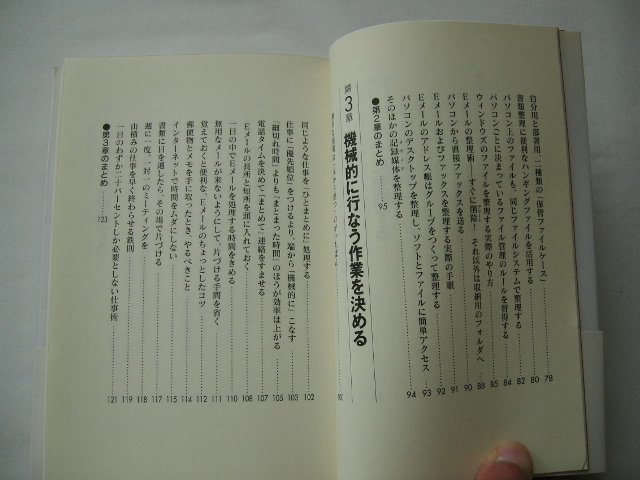 自分用と部署用、二種類の「保管ファイルケース」 78
書類整理に便利なハンギングファイルを活用する 80
パソコン上のファイルも、同じファイルシステムで整理する 82
パソコンごとに決まっているファイル管理のルールを習得する 84
ウィンドウズのファイルを整理する実際のやり方 85
Eメールの整理術──すぐに削除！ それ以外は収納用のフォルダへ 88
パソコンから直接ファックスを送る 90
Eメールおよびファックスを整理する実際の手順 91
Eメールのアドレス帳はグループをつくって整理する 92
パソコンのデスクトップを整理し、ソフトとファイルに簡単アクセス 93
そのほかの記録媒体を整理する 94
●第2章のまとめ 95
第3章 機械的に行なう作業を決める
同じような仕事を「ひとまとめに」処理する 102
仕事に「優先順位」をつけるより、端から「機械的に」こなす 103
「細切れ時間」よりも「まとまった時間」のほうが効率は上がる 105
電話タイムを決めて「まとめて」連絡をすませる 107
Eメールの長所と短所を頭に入れておく 108
一日の中でEメールを処理する時間をきめる 110
無用なメールが来ないようにして、片づける手間を省く 111
覚えておくと便利な、Eメールのちょっとしたコツ 111
郵便物とメモを手に取ったとき、やるべきこと 114
インターネットで時間をムダにしない 116
書類に目を通したら、その場で片づける 117
週に一度、「一対一」のミーティングを 118
山積みの仕事を早く終わらせる鉄則 119
一日のわずか二十パーセントしか必要としない仕事術 121
●第3章のまとめ 123